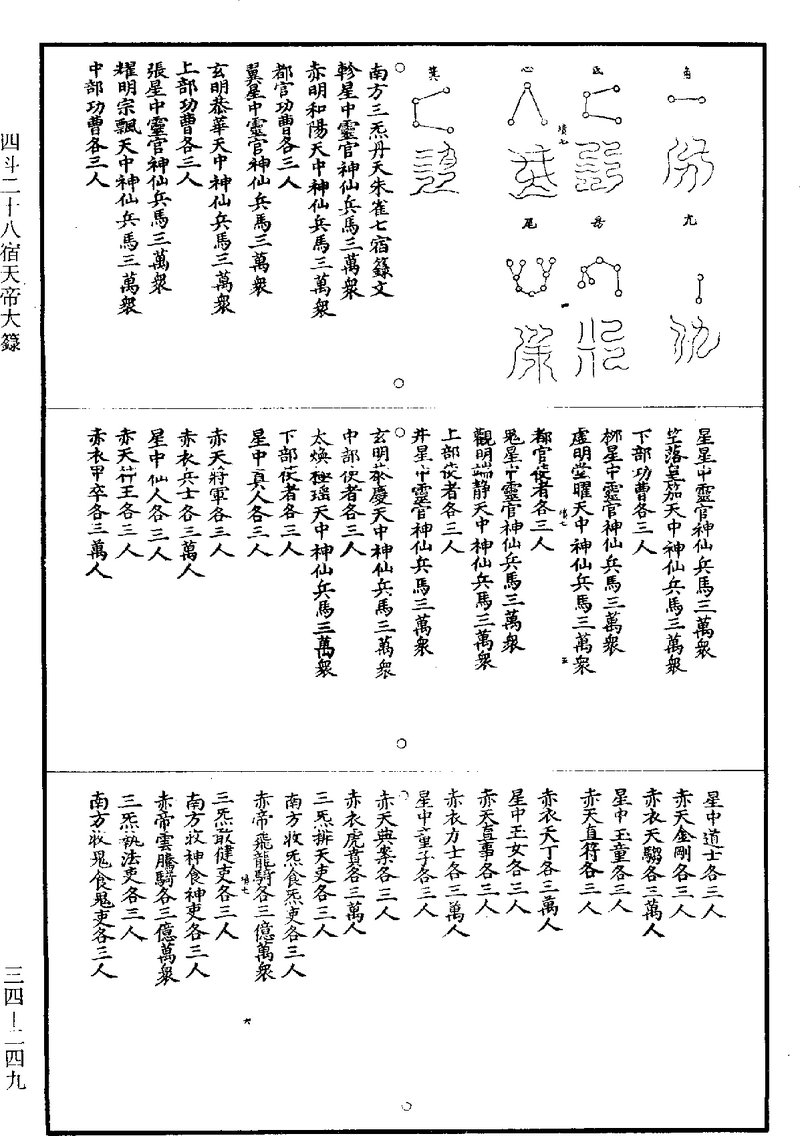 四斗二十八宿天帝大籙
角
亢
氐
房
心
尾
箕
南方三炁丹天朱雀七宿籙文
軫星中靈官神仙兵馬三萬眾
赤明和陽天中神仙兵馬三萬眾
都官功曹各三人
翼星中靈官神仙兵馬三萬眾
玄明恭華天中神仙兵馬三萬眾
上部功曹各三人
張星中靈官神仙兵馬三萬眾
耀明宗飄天中神仙兵馬三萬眾
中部功曹各三人
星星中靈官神仙兵馬三萬眾
竺落皇笳天中神仙兵馬三萬眾
下部功曹各三人
柳星中靈官神仙兵馬三萬眾
虛明堂曜天中神仙兵馬三萬眾
都官使者各三人
鬼星中靈官神仙兵馬三萬眾
觀明端静天中神仙兵馬三萬眾
上部使者各三人
井星中靈官神仙兵馬三萬眾
玄明恭慶天中神仙兵馬三萬眾
中部使者各三人
太煥極瑶天中神仙兵馬三萬眾
下部使者各三人
星中真人各三人
赤天將軍各三人
赤衣兵士各三萬人
星中仙人各三人
赤天符王各三人
赤衣甲卒各三萬人
星中道士各三人
赤天金剛各三人
赤衣天騶各三萬人
星中玉童各三人
赤天直符各三人
赤衣天丁各三萬人
星中玉女各三人
赤天直事各三人
赤衣力士各三萬人
星中童子各三人
赤天典案各三人
赤衣虎賁各三萬人
三炁排天吏各三人
南方收炁食炁吏各三人
赤帝飛龍騎各三億萬眾
三炁敢健吏各三人
南方收神食神吏各三人
赤帝雲騰騎各三億萬眾
三炁執法吏各三人
南方收鬼食鬼吏各三人
三四—二四九